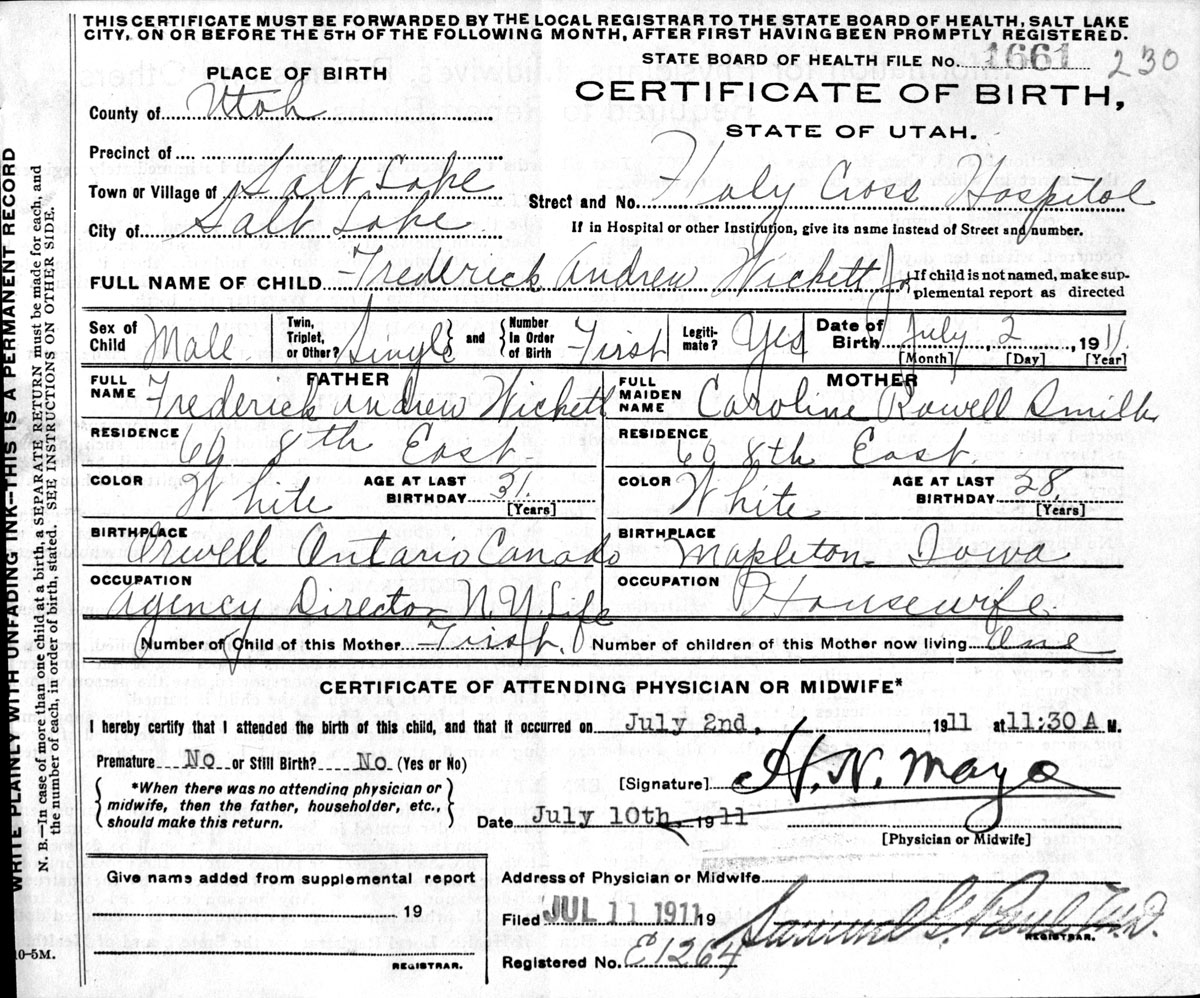 THIS CERTIFICATE MUST BE FORWARDED BY THE LOCAL REGISTRAR TO THE STATE BOARD OF HEALTH, SALT LAKE
CITY, ON OR BEFORE THE 5TH OF THE FOLLOWING MONTH, AFTER FIRST HAVING BEEN PROMPTLY REGISTERED.
STATE BOARD OF HEALTH FILE No. 1661 230
PLACE OF BIRTH
CERTIFICATE OF BIRTH,
STATE OF UTAH.
County of Utah
Precinct of
Town or Village of Salt Lake
Street and No. Holy Cross Hospital
City of Salt Lake
If in Hospital or other Institution, give its name instead of Street and number.
FULL NAME OF CHILD Frederick Andrew Wickett Jr. If child is not named, make sup-
plemental report as directed
Sex of Child Male
Twin, Triplet, or Other? Single and Number In Order of Birth First
Legiti-mate? Yes
Date of Birth July 2, 1911.
[Month] [Day] [Year]
FATHER
FULL NAME Frederick Andrew Wickett
MOTHER
FULL MAIDEN NAME Caroline Rowell Smith
RESIDENCE 69 8th East
RESIDENCE 69 8th East.
COLOR White AGE AT LAST BIRTHDAY 31. [Years]
COLOR White AGE AT LAST BIRTHDAY 28. [Years]
BIRTHPLACE Orwell Ontario Canada
BIRTHPLACE Mapleton Iowa
OCCUPATION Agency Director N.Y. Life
OCCUPATION Housewife
Number of Child of this Mother First. Number of children of this Mother now living One
CERTIFICATE OF ATTENDING PHYSICIAN OR MIDWIFE*
I hereby certify that I attended the birth of this child, and that it occurred on July 2nd, 1911 at 11:30 A M.
Premature No or Still Birth? No (Yes or No)
*When there was no attending physician or
midwife, then the father, householder, etc.,
should make this return.
[Signature] H. N. Mayo
Date July 10th, 1911
[Physician or Midwife]
Give name added from supplemental report
19
REGISTRAR.
Address of Physician or Midwife
Filed JUL 11 1911 19 Samuel G. Paul M.D.
REGISTRAR.
Registered No. E1264
10-5M.
WRITE PLAINLY WITH UNFADING INK—THIS IS A PERMANENT RECORD
N. B.—In case of more than one child at a birth, a SEPARATE RETURN must be made for each, and
the number of each, in order of birth, stated. SEE INSTRUCTIONS ON OTHER SIDE.